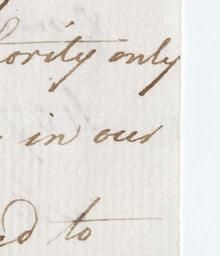 hority only
in our
ed to